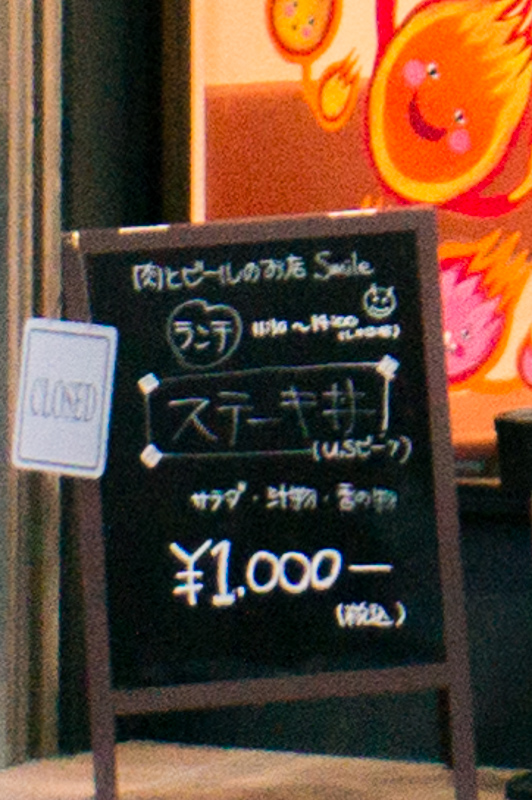 肉とビールのお店 Smile
ランチ 11:30〜14:00
ステーキ丼
(U.Sビーフ)
CLOSED
サラダ・汁物・香の物
¥1,000ー
(税込)